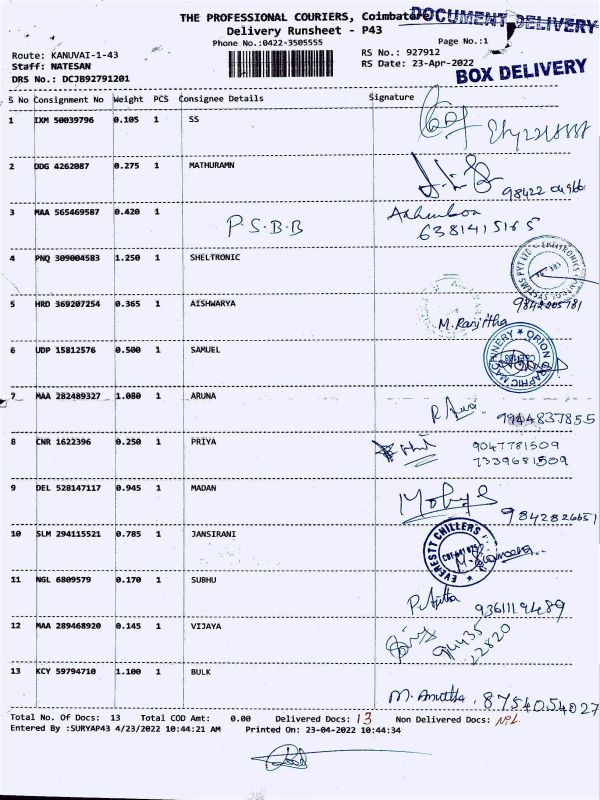 THE PROFESSIONAL COURIERS, Coimbatore
DOCUMENT DELIVERY
Delivery Runsheet - P43
Phone No.:0422-3505555 Page No.:1
Route: KANUVAI-1-43 RS No.: 927912
Staff: NATESAN RS Date: 23-Apr-2022
DRS No.: DCJB92791201
BOX DELIVERY
S No Consignment No Weight PCS Consignee Details Signature
1 IXM 50039796 0.105 1 SS
2 DDG 4262087 0.275 1 MATHURAMN
98422 04966
3 MAA 565469587 0.420 1
P.S.B.B
6381415165
4 PNQ 309004583 1.250 1 SHELTRONIC
5 HRD 369207254 0.365 1 AISHWARYA
9842205781
M. Ranjitha
6 UDP 15812576 0.500 1 SAMUEL
ORION GRAPHIC MACHINERY
7 MAA 282489327 1.080 1 ARUNA
9944837855
8 CNR 1622396 0.250 1 PRIYA
9047781509
7339681509
9 DEL 528147117 0.945 1 MADAN
9842826651
10 SLM 294115521 0.785 1 JANSIRANI
EVERESTT CHILLERS
11 NGL 6809579 0.170 1 SUBHU
9361119489
12 MAA 289468920 0.145 1 VIJAYA
94435
22820
13 KCY 59794710 1.100 1 BULK
M. Amutha. 8754054027
Total No. Of Docs: 13 Total COD Amt: 0.00 Delivered Docs: 13 Non Delivered Docs: NIL
Entered By :SURYAP43 4/23/2022 10:44:21 AM Printed On: 23-04-2022 10:44:34